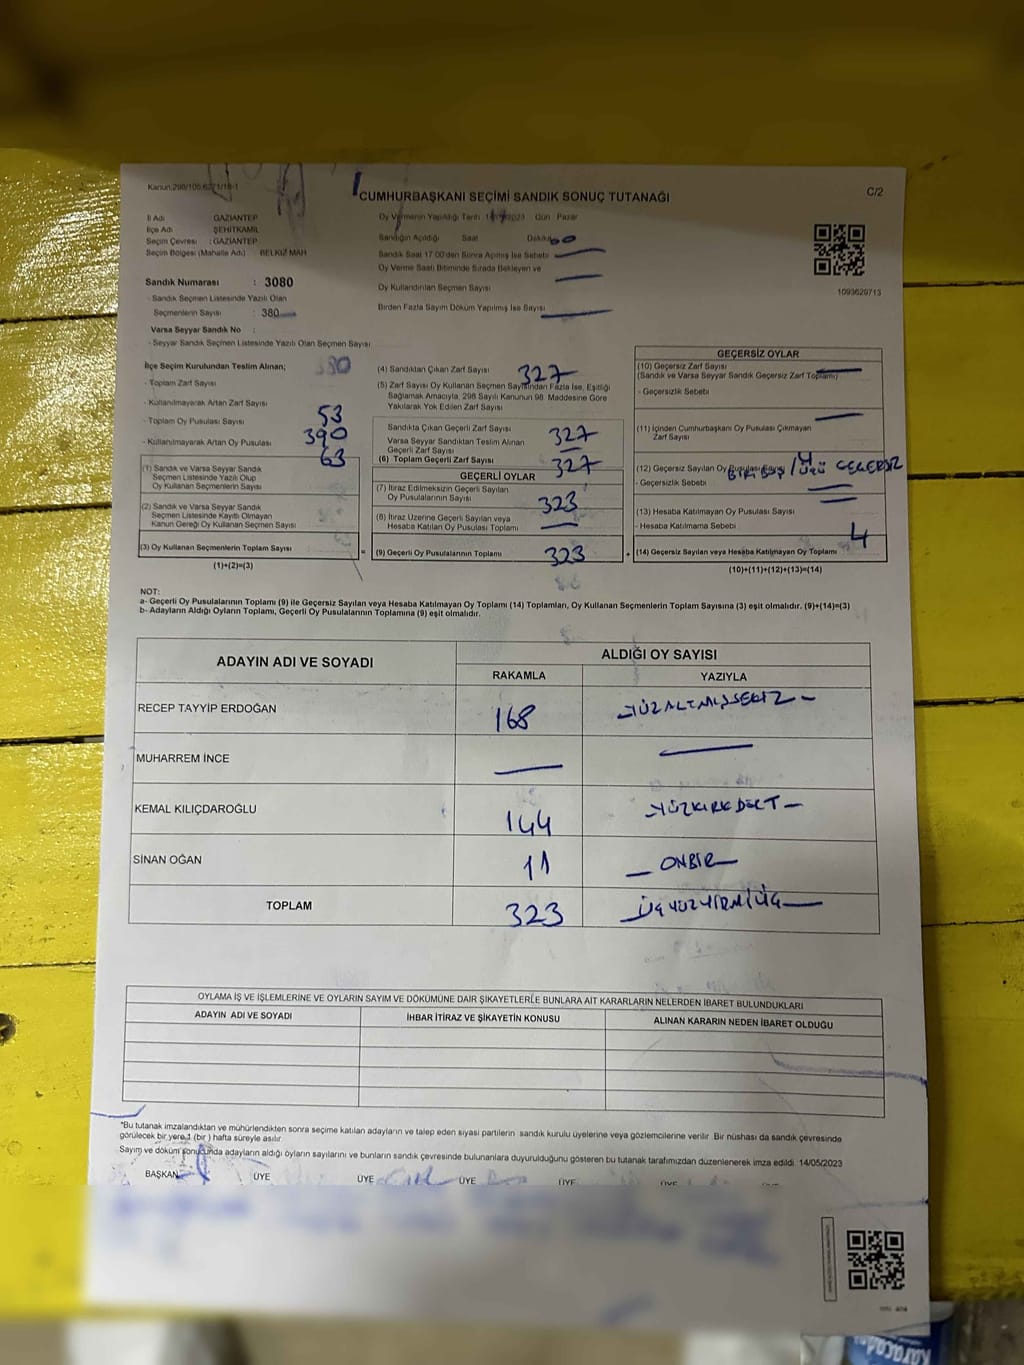 Kanun 298/105,6271/18-1
CUMHURBAŞKANI SEÇİMİ SANDIK SONUÇ TUTANAĞI
C/2
İl Adı GAZİANTEP
İlçe Adı ŞEHİTKAMİL
Seçim Çevresi : GAZİANTEP
Seçim Bölgesi (Mahalle Adı) BELKIZ MAH
Sandık Numarası : 3080
- Sandık Seçmen Listesinde Yazılı Olan
Seçmenlerin Sayısı : 380
Varsa Seyyar Sandık No :
- Seyyar Sandık Seçmen Listesinde Yazılı Olan Seçmen Sayısı
Oy Vermenin Yapıldığı Tarih Gün Pazar
Sandığın Açıldığı Saat Dakika
Sandık Saat 17:00'den Sonra Açılmış İse Sebebi
Oy Verme Saati Bitiminde Sırada Bekleyen ve
Oy Kullandırılan Seçmen Sayısı
Birden Fazla Sayım Döküm Yapılmış İse Sayısı
1093629713
İlçe Seçim Kurulundan Teslim Alınan; 380
- Toplam Zarf Sayısı
- Kullanılmayarak Artan Zarf Sayısı 53
- Toplam Oy Pusulası Sayısı 390
- Kullanılmayarak Artan Oy Pusulası 63
(1) Sandık ve Varsa Seyyar Sandık
Seçmen Listesinde Yazılı Olup
Oy Kullanan Seçmenlerin Sayısı
(2) Sandık ve Varsa Seyyar Sandık
Seçmen Listesinde Kayıtlı Olmayan
Kanun Gereği Oy Kullanan Seçmen Sayısı
(3) Oy Kullanan Seçmenlerin Toplam Sayısı
(1)+(2)=(3)
=
(4) Sandıktan Çıkan Zarf Sayısı 327
(5) Zarf Sayısı Oy Kullanan Seçmen Sayısından Fazla İse, Eşitliği
Sağlamak Amacıyla, 298 Sayılı Kanunun 98. Maddesine Göre
Yakılarak Yok Edilen Zarf Sayısı
Sandıkta Çıkan Geçerli Zarf Sayısı 327
Varsa Seyyar Sandıktan Teslim Alınan
Geçerli Zarf Sayısı
(6) Toplam Geçerli Zarf Sayısı 327
GEÇERLİ OYLAR
(7) İtiraz Edilmeksizin Geçerli Sayılan
Oy Pusulalarının Sayısı 323
(8) İtiraz Üzerine Geçerli Sayılan veya
Hesaba Katılan Oy Pusulası Toplamı
(9) Geçerli Oy Pusulalarının Toplamı 323
+
GEÇERSİZ OYLAR
(10) Geçersiz Zarf Sayısı
(Sandık ve Varsa Seyyar Sandık Geçersiz Zarf Toplamı)
- Geçersizlik Sebebi
(11) İçinden Cumhurbaşkanı Oy Pusulası Çıkmayan
Zarf Sayısı
(12) Geçersiz Sayılan Oy Pusulası Sayısı 4
- Geçersizlik Sebebi BİRİ BOŞ / ÜÇÜ GEÇERSİZ
(13) Hesaba Katılmayan Oy Pusulası Sayısı
- Hesaba Katılmama Sebebi
(14) Geçersiz Sayılan veya Hesaba Katılmayan Oy Toplamı 4
(10)+(11)+(12)+(13)=(14)
NOT:
a- Geçerli Oy Pusulalarının Toplamı (9) ile Geçersiz Sayılan veya Hesaba Katılmayan Oy Toplamı (14) Toplamları, Oy Kullanan Seçmenlerin Toplam Sayısına (3) eşit olmalıdır. (9)+(14)=(3)
b- Adayların Aldığı Oyların Toplamı, Geçerli Oy Pusulalarının Toplamına (9) eşit olmalıdır.
ADAYIN ADI VE SOYADI
ALDIĞI OY SAYISI
RAKAMLA YAZIYLA
RECEP TAYYİP ERDOĞAN 168 YÜZALTMIŞSEKİZ
MUHARREM İNCE
KEMAL KILIÇDAROĞLU 144 YÜZKIRKDÖRT
SİNAN OĞAN 11 ONBİR
TOPLAM 323 ÜÇYÜZYİRMİÜÇ
OYLAMA İŞ VE İŞLEMLERİNE VE OYLARIN SAYIM VE DÖKÜMÜNE DAİR ŞİKAYETLERLE BUNLARA AİT KARARLARIN NELERDEN İBARET BULUNDUKLARI
ADAYIN ADI VE SOYADI İHBAR İTİRAZ VE ŞİKAYETİN KONUSU ALINAN KARARIN NEDEN İBARET OLDUĞU
*Bu tutanak imzalandıktan ve mühürlendikten sonra seçime katılan adayların ve talep eden siyasi partilerin sandık kurulu üyelerine veya gözlemcilerine verilir. Bir nüshası da sandık çevresinde
görülecek bir yere 1 (bir ) hafta süreyle asılır.
Sayım ve döküm sonucunda adayların aldığı oyların sayılarını ve bunların sandık çevresinde bulunanlara duyurulduğunu gösteren bu tutanak tarafımızdan düzenlenerek imza edildi. 14/05/2023
BAŞKAN ÜYE ÜYE ÜYE ÜYE ÜYE ÜYE
karacadağ